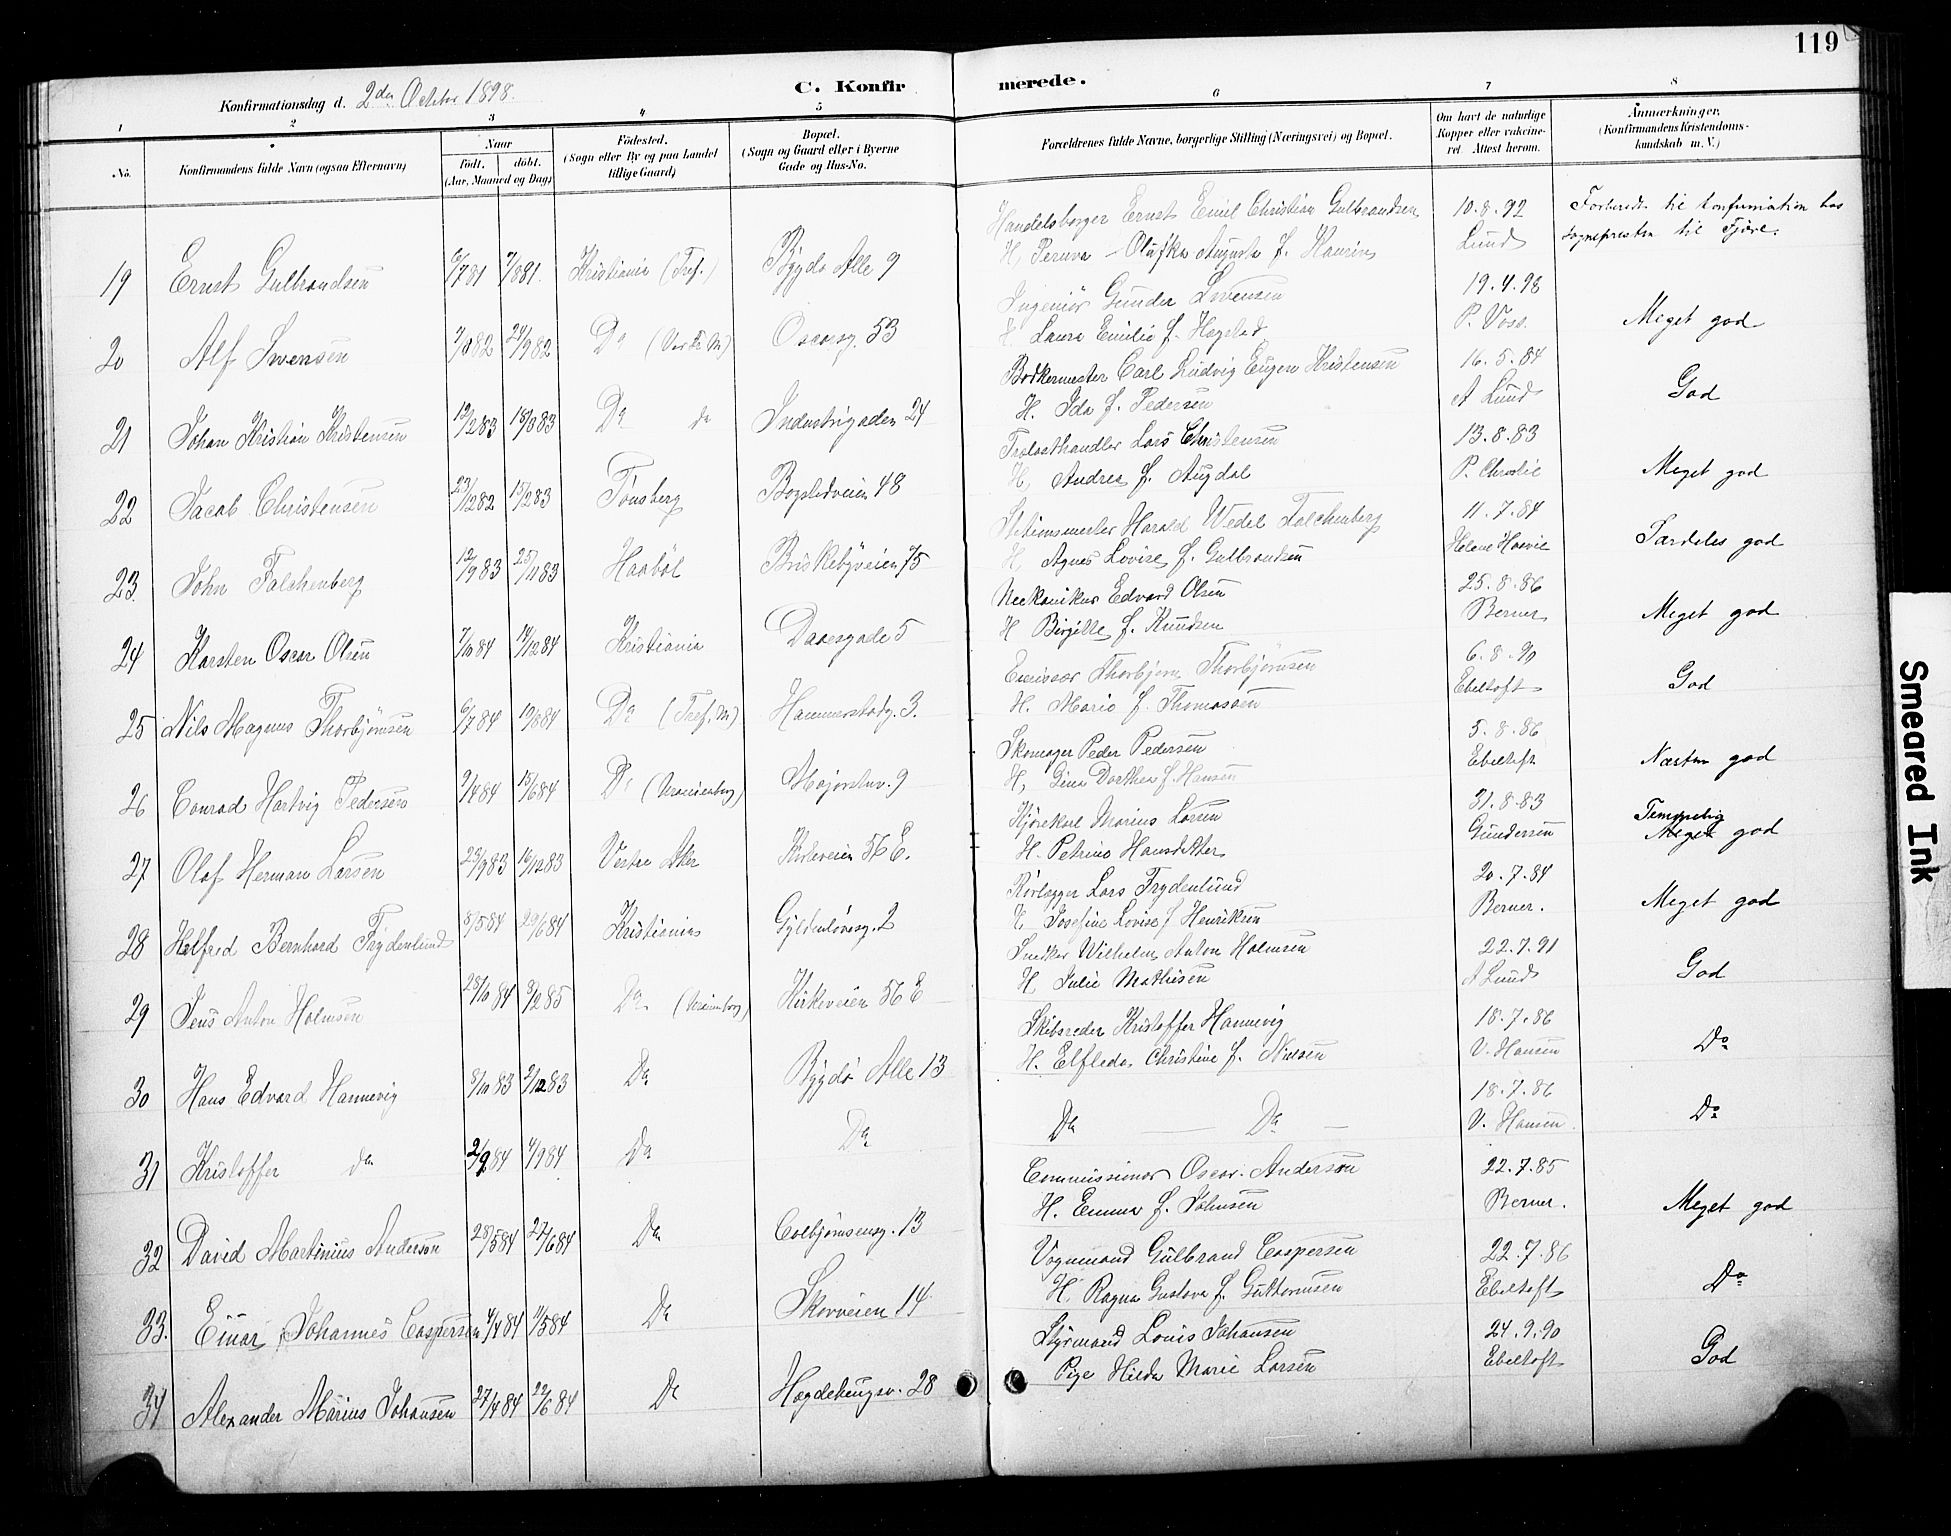 119
Konfirmationsdag d. 2den October 1898.
C. Konfirmerede.
1 2 3 4 5 6 7 8
No.
Konfirmandens fulde Navn (ogsaa Efternavn)
Naar
født. døbt.
(Aar, Maaned og Dag)
Fødested.
(Sogn eller By og paa Landet
tillige Gaard)
Bopæl.
(Sogn og Gaard eller i Byerne
Gade og Hus-No.
Forældrenes fulde Navne, borgerlige Stilling (Næringsvei) og Bopæl.
Om havt de naturlige
Kopper eller vakcine-
ret. Attest herom.
Anmerkninger.
(Konfirmandens Kristendoms-
kundskab m. V.)
19 Ernst Gulbrandsen 6/7 81 7/8 81. Kristiania (Tref.) Bygdø Alle 9
Handelsborger Ernst Emil Christian Gulbrandsen
H. Olufka Augusta f.
10.8.92
Lund
Forberedt til Konfirmation hos
Sognepresten til Fjære.
20 Alf Iversen 24/9 82 Do Oscarsg. 53
Ingeniør Gunder Iversen
H. Laura Emilie f. Hegstad
19.4.98
P. Voss.
Meget god
21 Johan Kristian Kristensen 12/2 83 Do do Industrigaden 24
Bødkermester Carl Ludvig Eugen Kristensen
H. Ida f. Pedersen
16.5.84
A Lund
God
22 Jacob Christensen 23/12 82 15/2 83 Tønsberg Bogstadveien 48
Trælasthandler Lars Christensen
H. Andrea f. Augdal
13.8.83
P. Christie
Meget god
23. John Falchenberg 12/9 83 25/11 83 Haabøl Briskebyveien 75
Stationsmester Harald Wedel Falchenberg
H. Agnes Lovise f. Gulbrandsen
11.7.84
Helene Haavie
Særdeles god
24 Karsten Oscar Olsen 7/10 84 14/12 84 Kristiania Daaesgade 5
Mekanikus Edvard Olsen
H Birgitte f. Knudsen
25.8.86
Berner
Meget god
25 Nils Magnus Thorbjørnsen 6/7 84 10/8 84 Do (Tref. M) Hammerstadg. 3.
Emissær Thorbjørn Thorbjørnsen
H. Marie f. Thomassen
6.8.90
Ebeltoft
God
26 Conrad Hartvig Pedersen 9/4 84 15/6 84 Do (Uranienborg) Majorstuv. 9
Skomager Peder Pedersen
H. Lina Dorthea f. Hansen
5.8.86
Ebeltoft
Næsten god
27 Olaf Herman Larsen 23/9 83 16/12 83 Vestre Aker Kirkeveien 56 E.
Kjørekarl Marius Larsen
H. Petrine Hansdatter
31.8.83
Gundersen
Temmelig
Meget god
28 Halfred Bernhard Frydenlund 5/5 84 29/6 84 Kristiania Gyldenløvesg. 2
Rørlægger Lars Frydenlund
H. Josefine Lovise f Henriksen
20.7.84
Berner.
Meget god
29 Jens Anton Holmsen 23/10 84 8/2 85 Do (Uranienborg) Kirkeveien 56 E
Snedker Wilhelm Anton Holmsen
H. Julie Mathisen
22.7.91
A Lund
God
30 Hans Edvard Hannevig 8/10 83 2/12 83 Do Bygdø Alle 13
Skibsreder Kristoffer Hannevig
H. Elfleda Christine f. Nielsen
18.7.86
V. Hansen
Do
31 Kristoffer do 2/9 84 4/9 84 Do Do
Do — Do —
18.7.86
V. Hansen.
Do
32 David Martinius Anderson 28/5 84 27/6 84 Do Colbjørnsensg. 13
Commissionær Oscar Anderson
H. Emma f. Johnsen
22.7.85
Berner.
Meget god
33. Einar Johannes Caspersen 4/4 84 11/5 84 Do Skovveien 14
Vognmand Gulbrand Caspersen
H. Ragna Gustava f. Guttormsen
22.7.86
Ebeltoft
Do
34 Alexander Marius Johansen 27/4 84 22/6 84 Do Hægdehaugsv. 28
Styrmand Louis Johansen
Pige Hilda Marie Larsen
24.9.90
Ebeltoft
God
Smeared Ink